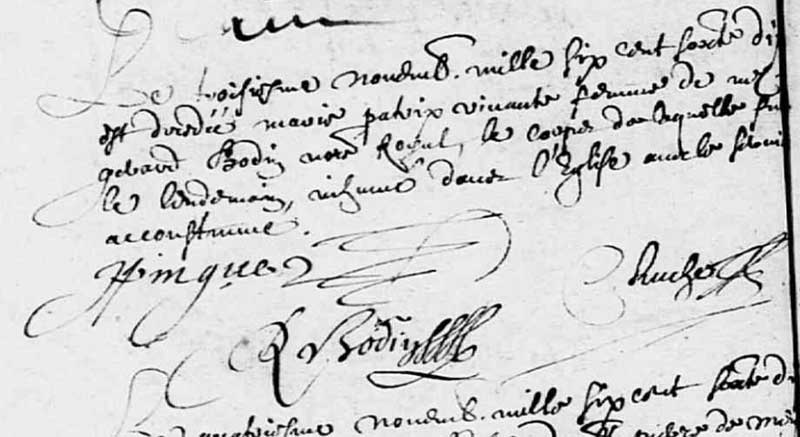 Le troisiesme novemb. mille six cent soixte di
est decedée marie patrix vivante femme de me
gerard Bodin nore Royal, le corps de laquelle fut
le lendemain, inhumé dans l'Eglise avec le service
accoustumé.
H Pinguet
Ruche
R Bodin
Le quatriesme novemb. mille six cent soixte di